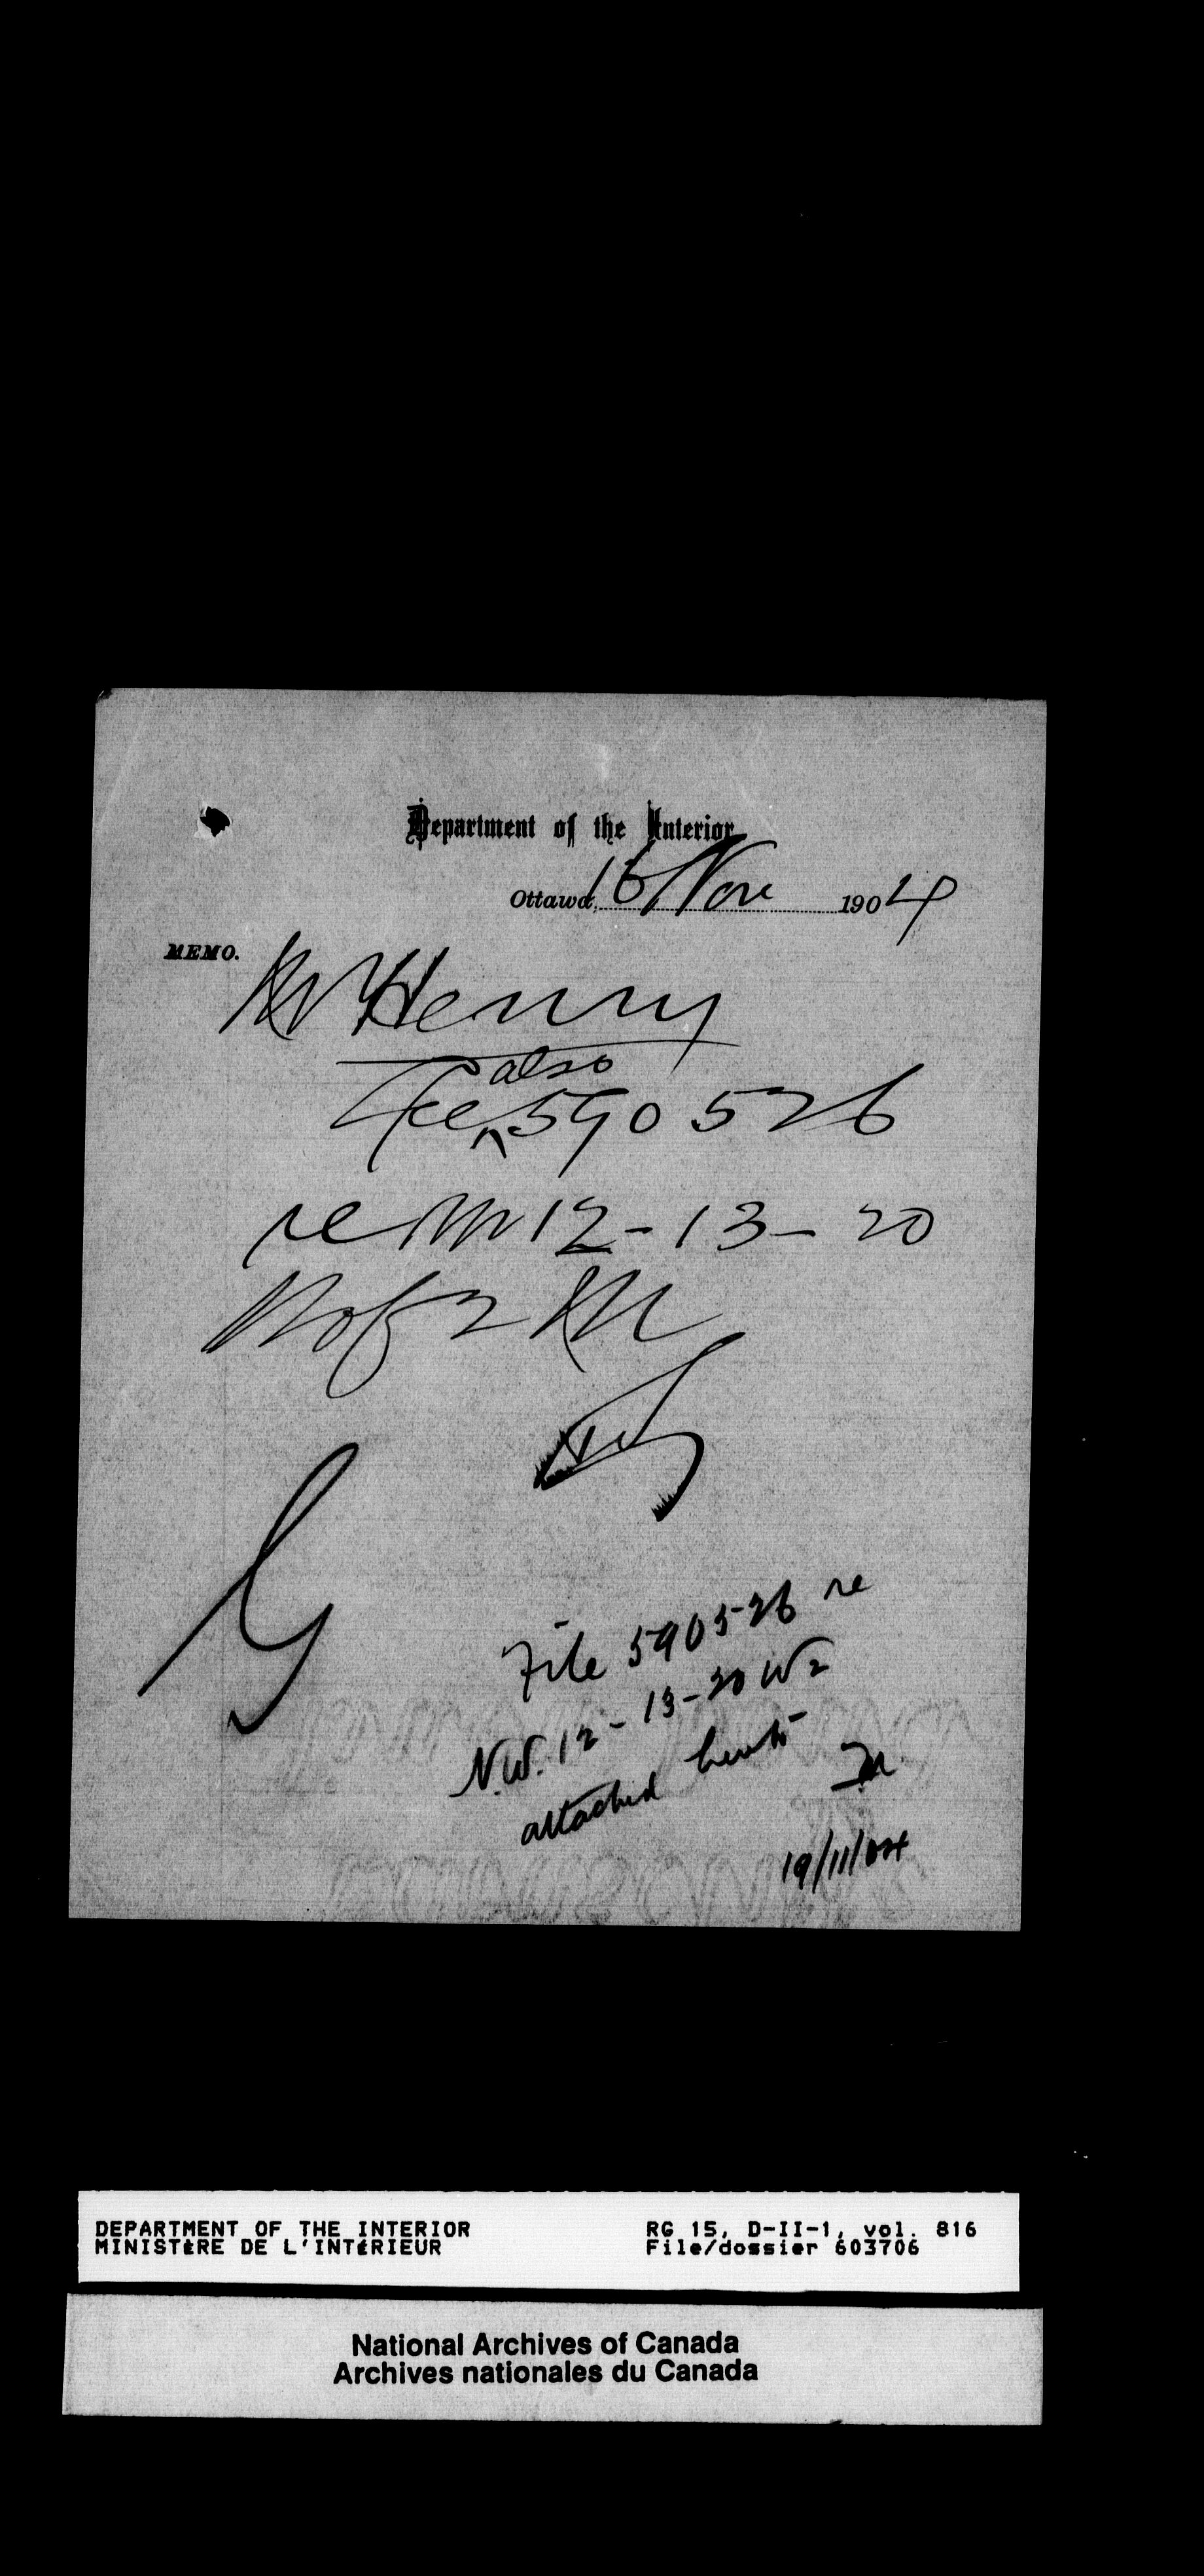 Department of the Interior
Ottawa, 16 Nov 1904
MEMO.
Mr Henry
See also 590526
re NW 12-13-20
W of 2 M
File 590526 re
N.W. 12-13-20 W2
attached hereto
19/11/04
DEPARTMENT OF THE INTERIOR
MINISTÈRE DE L'INTÉRIEUR
RG 15, D-II-1, vol. 816
File/dossier 603706
National Archives of Canada
Archives nationales du Canada